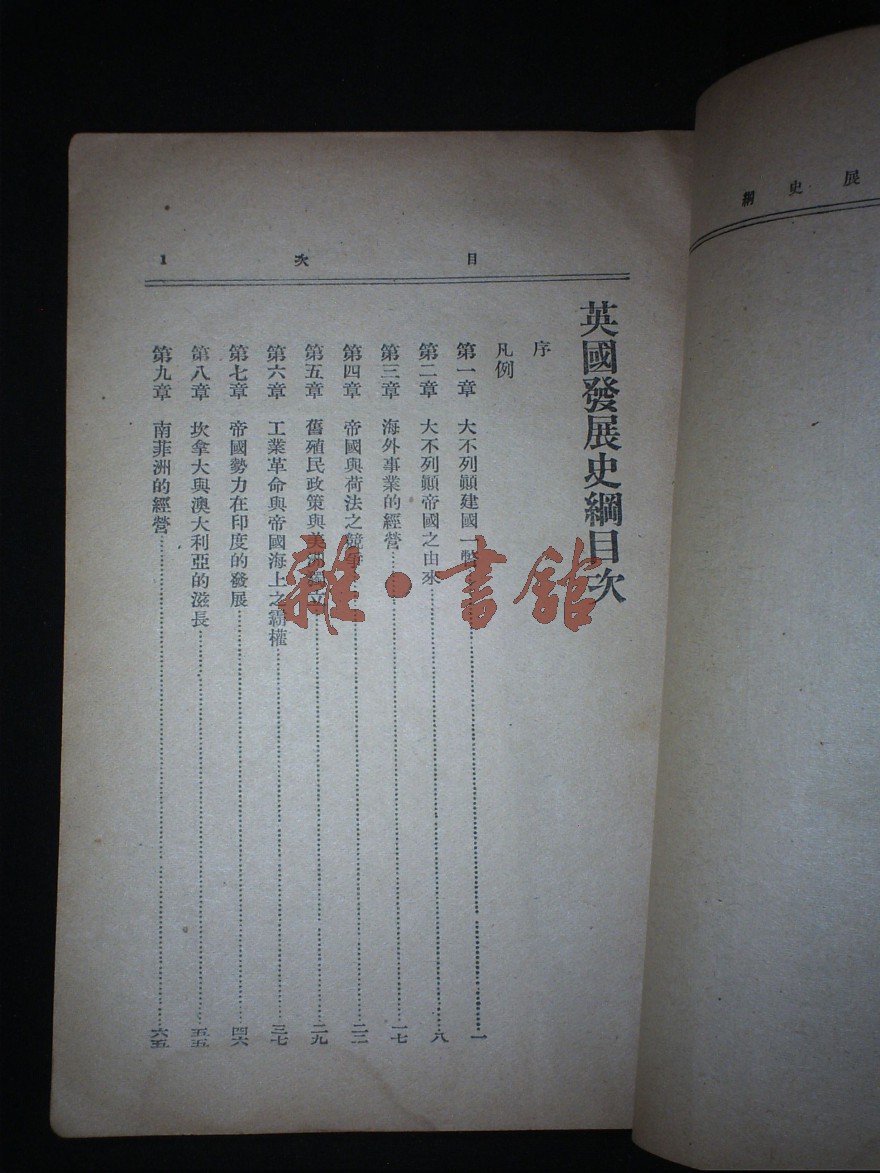 展史綱
目次 1
英國發展史綱目次
序
凡例
第一章 大不列顛建國一瞥 一
第二章 大不列顛帝國之由來 八
第三章 海外事業的經營 一七
第四章 帝國與荷法之競爭 二二
第五章 舊殖民政策與美洲獨立 二九
第六章 工業革命與帝國海上之霸權 三七
第七章 帝國勢力在印度的發展 四六
第八章 坎拿大與澳大利亞的滋長 五五
第九章 南菲洲的經營 六五
雜·書館